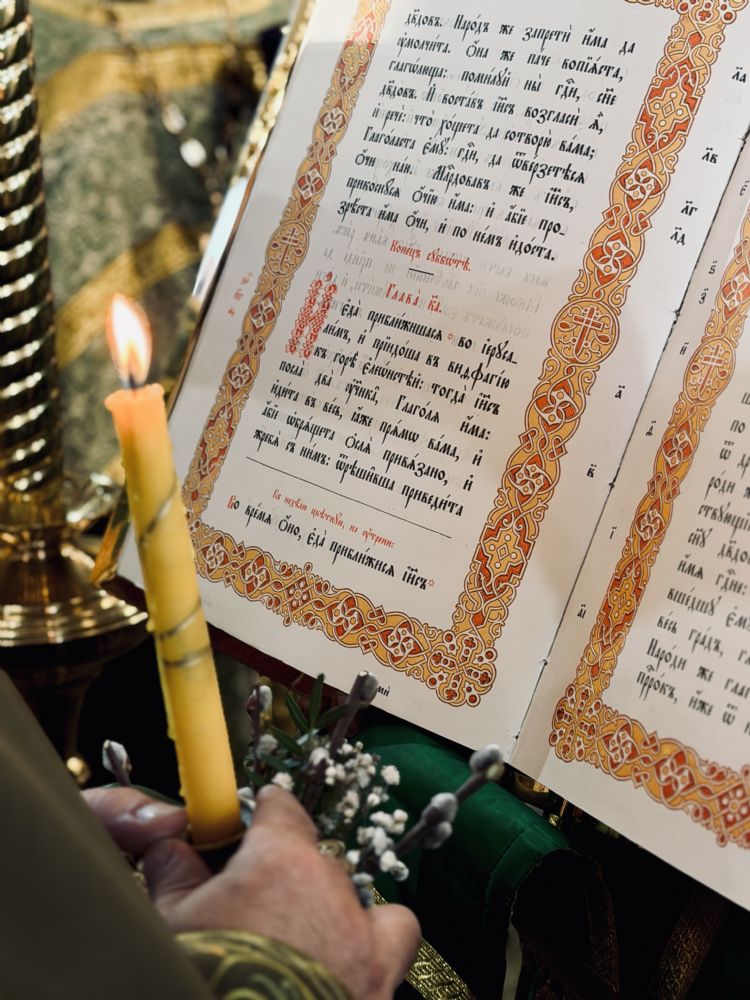 дв҃довъ. Наро́дъ же запретѝ и҆́ма да
ᲂу҆молчи́та. Ѡ҆́на же па́че вопїѧ́ста,
глаго́люща: поми́лꙋй ны̀ гдⷭ҇и, сн҃е
дв҃довъ. И҆ воста́въ і҆и҃съ возгласѝ ѧ҆̀,
и҆ речѐ: что̀ хо́щета да сотворю̀ ва́ма;
Глаго́ласта є҆мꙋ̀: гдⷭ҇и, да ѿве́рзетѣсѧ
ѻ҆́чи на́ю. Мⷧ҇рдовавъ же і҆и҃съ,
прикоснꙋ́сѧ ѻ҆чі́ю и҆́ма: и҆ а҆́бїе про-
зрѣ́ста и҆́ма ѻ҆́чи, и҆ по не́мъ и҆до́ста.
Коне́цъ сꙋббѡ́тѣ.
Глава̀ к҃а.
И҆ є҆гда̀ прибли́жишасѧ во і҆ерⷭ҇а-
ли́мъ, и҆ прїидо́ша въ виѳфагі́ю
къ горѣ̀ є҆леѡ́нстѣй: тогда̀ і҆и҃съ
посла̀ два̀ ᲂу҆чн҃ка̑, Глаго́лѧ и҆́ма:
и҆ди́та въ ве́сь, ꙗ҆́же прѧ́мѡ ва́ма, и҆
а҆́бїе ѡ҆брѧ́щета ѻ҆слѧ̀ привѧ́зано, и҆
жребѧ̀ съ ни́мъ: ѿрѣши́вша приведи́та
Въ недѣ́лю цвѣтнꙋ́ю, на ᲂу҆́трени:
Во вре́мѧ ѻ҆́но, є҆гда̀ прибли́жисѧ і҆и҃съ
л҃а
л҃в
л҃г
л҃д
а҃
в҃
ѕ҃
з҃
и҃
ѳ҃
і҃
а҃і
по
ѿ д
роди
ствꙋющі
сн҃ꙋ дв҃дов
и҆́мѧ гдⷭ҇не:
вше́дшꙋ є҆мꙋ̀
ве́сь гра́дъ, гл
Наро́ди же глаг
прⷪ҇ро́къ, и҆́же ѿ н